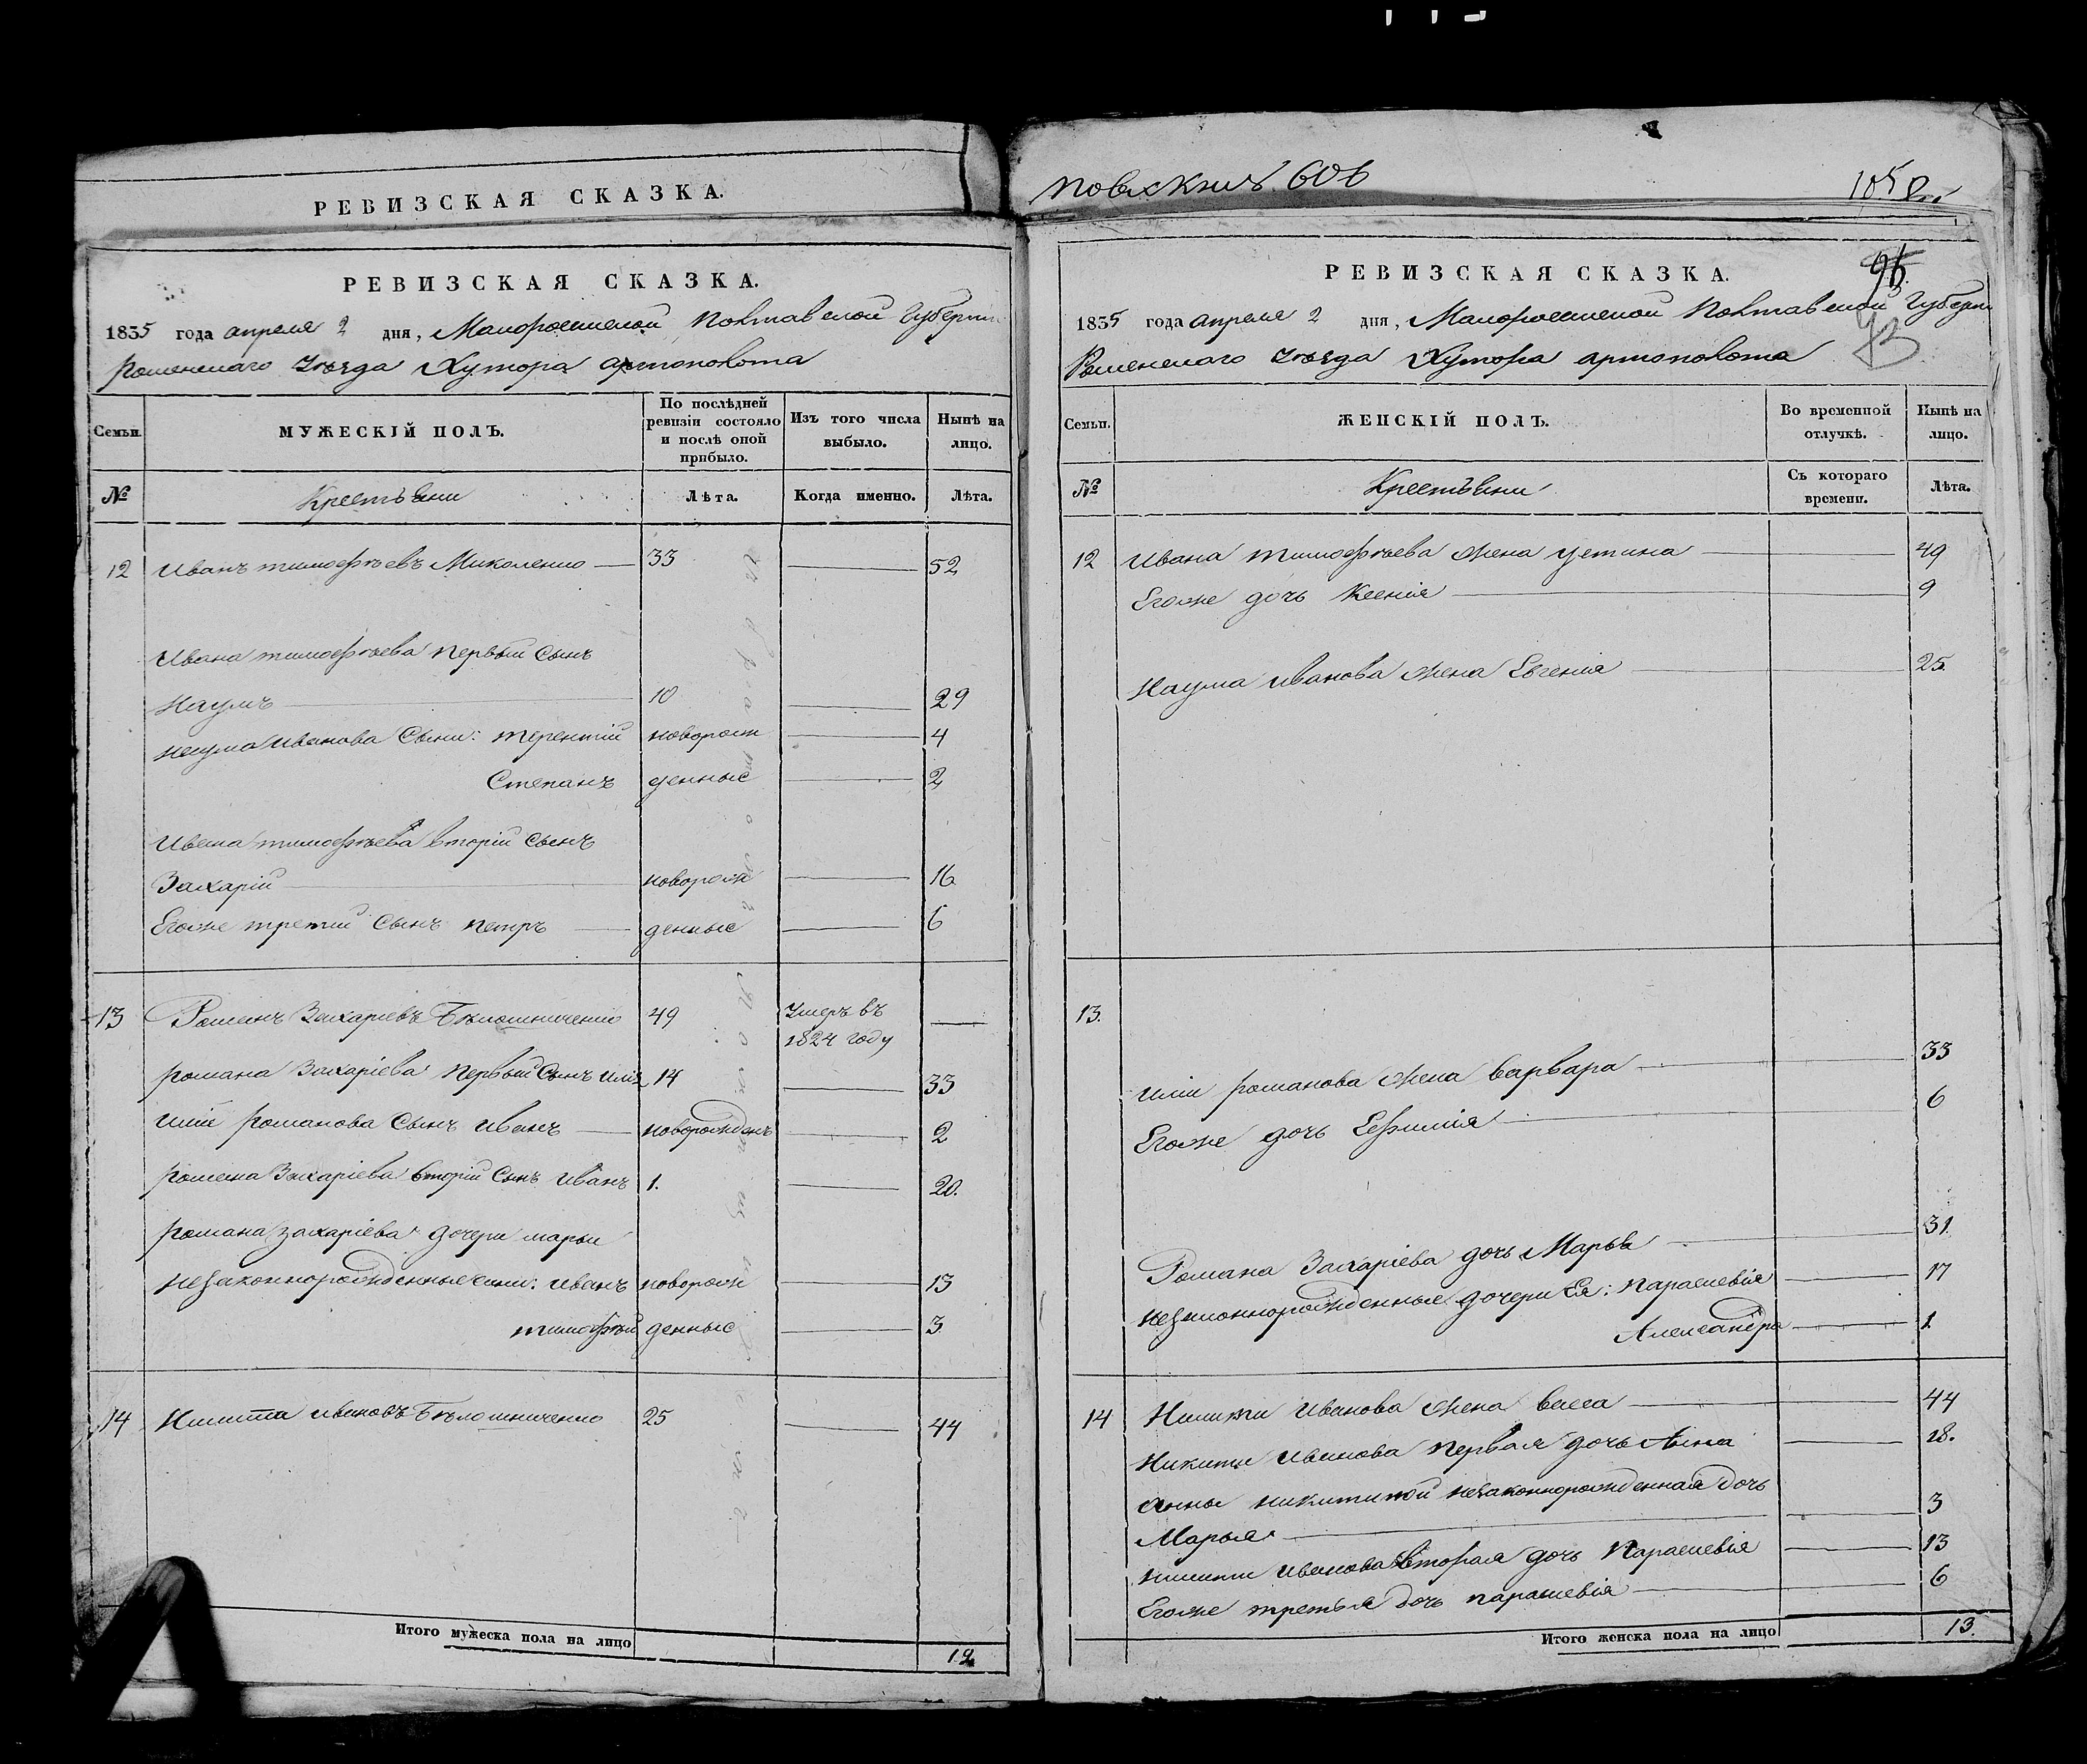 РЕВИЗСКАЯ СКАЗКА.
РЕВИЗСКАЯ СКАЗКА.
1835 года апреля 2 дня, Малоросииской Полтавской Губернии
Роменскаго Уѣзда Хутора артополота
Семьи. МУЖЕСКІЙ ПОЛЪ. По послѣдней ревизіи состояло и послѣ оной прибыло. Изъ того числа выбыло. Нынѣ на лицо.
№ Крестьяни Лѣта. Когда именно. Лѣта.
12 Иванъ тимофѣевъ Миколенко 33 52
Ивана тимофѣева первый сынъ
Наумъ 10 29
наума иванова сыни: терентій новорож 4
Степанъ денные 2
Ивана тимофѣева вторій сынъ
Захарій новорож 16
Егоже третий сынъ петръ денные 6
13 Романъ Захаріевъ Бѣлошниченко 49 Умеръ въ
1824 году
романа Захаріева первый сынъ илія 14 33
иліи романова сынъ иванъ новорожденъ 2
романа Захаріева вторій сынъ иванъ 1. 20.
романа захаріева дочери марьи
незаконнорожденные сини: иванъ новорож 13
тимофѣй денные 3
14 Никита ивановъ Бѣлошниченко 25 44
Итого мужеска пола на лицо 12
105
95
РЕВИЗСКАЯ СКАЗКА.
1835 года апреля 2 дня, Малоросииской Полтавской Губерн
Роменскаго Уѣзда Хутора артополота
Семьи. ЖЕНСКІЙ ПОЛЪ. Во временной отлучкѣ. Нынѣ на лицо.
№ Крестьяни Съ котораго времени. Лѣта.
12 Ивана тимофѣева жена устина 49
Егоже дочь Ксенія 9
Наума иванова жена Евгенія 25.
13.
иліи романова жена варвара 33
Егоже дочь Ефимія 6
Романа Захаріева дочь Марья 31.
незаконнорожденные дочери Ея: параскевія 17
Александра 1.
14 Никити Иванова жена васса 44
Никити иванова первая дочь Анна 18.
анны никитиной незаконнорожденная дочь
Марья 3
никити иванова вторая дочь параскевія 13
Егоже третья дочь параскевія 6
Итого женска пола на лицо 13.